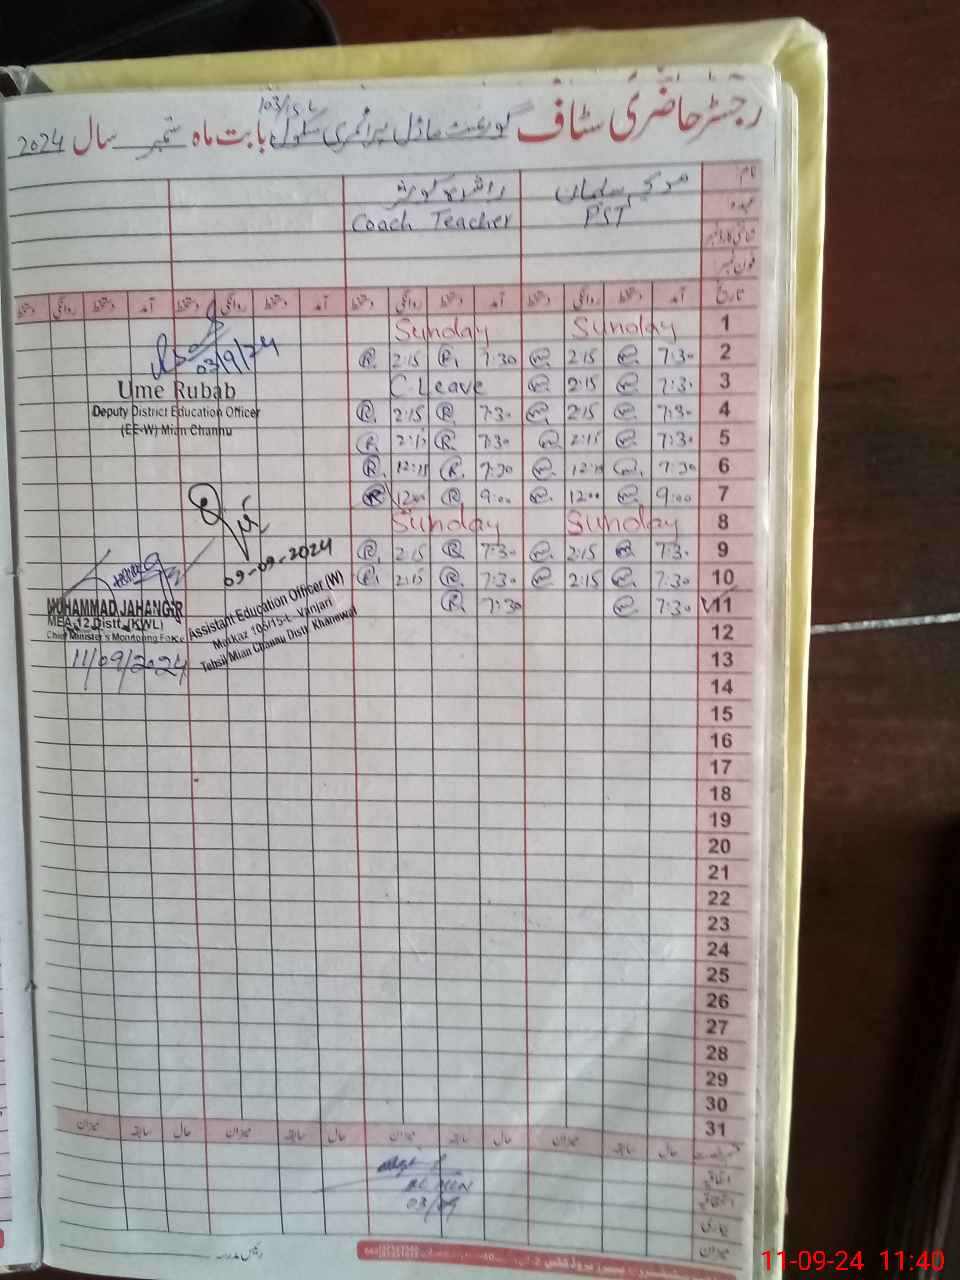 رجسٹر حاضری سٹاف گورنمنٹ ماڈل پرائمری سکول 103/15 L بابت ماہ ستمبر سال 2024
نام
عہدہ PST Coach Teacher
شناختی کارڈ نمبر
فون نمبر
تاریخ آمد دستخط روانگی دستخط آمد دستخط روانگی دستخط آمد دستخط روانگی دستخط آمد دستخط روانگی دستخط
1 Sunday Sunday
2 7:30 2:15 7:30 2:15
3 7:30 2:15 C.Leave
4 7:30 2:15 7:30 2:15
5 7:30 2:15 7:30 2:15
6 7:30 12:15 7:30 12:15
7 9:00 12:00 9:00 12:00
8 Sunday Sunday
9 7:30 2:15 7:30 2:15
10 7:30 2:15 7:30 2:15
11 7:30 7:30
12
13
14
15
16
17
18
19
20
21
22
23
24
25
26
27
28
29
30
31
03/9/24
Ume Rubab
Deputy District Education Officer
(EE-W) Mian Channu
09-09-2024
Assistant Education Officer (W)
Markaz 105/15-L Vanjari
Tehsil Mian Channu Distt Khanewal
MUHAMMAD JAHANGIR
MEA 12 Distt. (KWL)
Chief Minister's Monitoring Force
11/09/2024
حال سابقہ میزان حال سابقہ میزان حال سابقہ میزان حال سابقہ میزان
اتفاقیہ
بیماری
میزان
03/09
رئیس مدرسہ
11-09-24 11:40